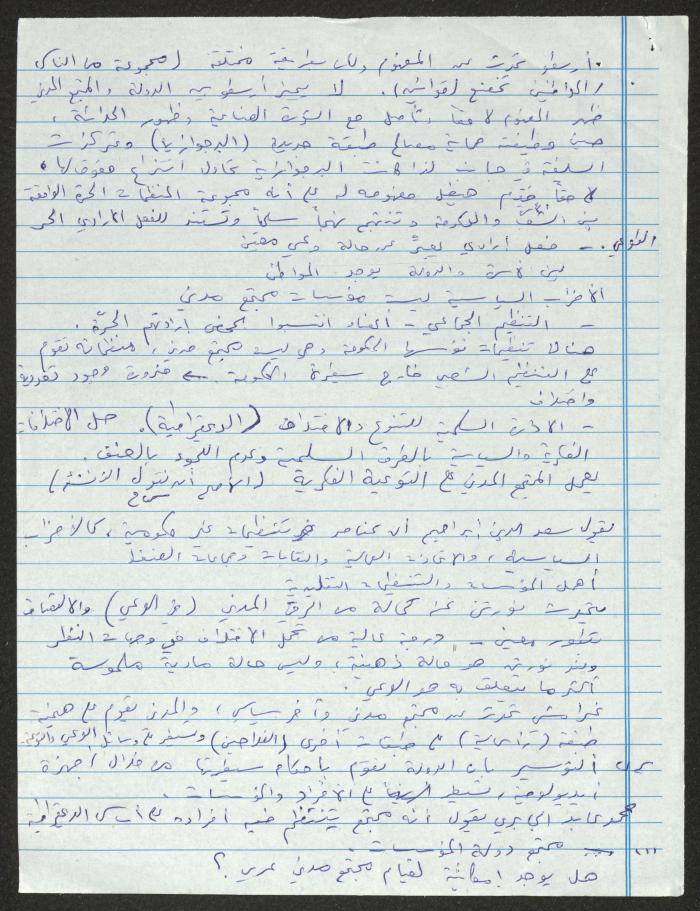 . أرسطو تحدث عن المفهوم ولكن بطريقة مختلفة (مجموعة من الناس
/ المواطنين تخضع لقوانين). لا يميز أرسطو بين الدولة والمجتمع المدني
ظهر المفهوم لاحقاً وتأصل مع الثورة الصناعية وظهور الحداثة،
حماية مصالح طبقة جديدة (البرجوازية) وتركزت
السلطة في جانب لذا كانت البرجوازية تحاول انتزاع حقوقها.
لاحقاً قدّم هيغل مفهومه له على أنه مجموعة المنظمات الحرة الواقعة
بين الشعب والحكومة وتنتهج نهجاً سلمياً وتستند للفعل الإرادي الحر
الطوعي. - فعل إرادي يعبّر عن حالة وعي معيّن
بين الأسرة والدولة يوجد المواطن
الأحزاب السياسية ليست مؤسسات مجتمع مدني
- التنظيم الجماعي - أعضاء انتسبوا بمحض إرادتهم الحرّة.
هنالك تنظيمات تؤسسها الحكومة وهي ليست مجتمع مدني، منظماته تقوم
على التنظيم الشعبي خارج سيطرة الحكومة ← ضرورة وجود تعددية
واختلاف
- الإدارة السلمية للتنوع والاختلاف (الديمقراطية). حل الاختلافات
الفكرية والسياسية بالطرق السلمية وعدم اللجوء بالعنف.
يعمل المجتمع المدني على التوعية الفكرية (الأصح أن نقول
يقول سعد الدين ابراهيم أن عناصر تنظيمات غير حكومية، كالأحزاب
السياسية، والاتحادات العمالية والنقابات وجماعات الضغط
أهمل المؤسسات والتنظيمات التقليدية
يتحدث نورتن عنه كحالة من الرقي المدني (في الوعي) والالتصاق
بتطور معين - درجة عالية من تحمل الاختلاف في وجهات النظر
وعند نورتن هو حالة ذهنية، وليس حالة مادية ملموسة
أكثر ما يتعلق به هو الوعي.
غرامشي تحدث عن مجتمع مدني وآخر سياسي، والمدني يقوم على هيمنة
طبقة (رأسمالية) على طبقات أخرى (الفلاحين) وتسيطر على وسائل الوعي
يرى ألتوسير بأن الدولة تقوم بإحكام سيطرتها من خلال أجهزة
أيديولوجية، تسيطر على الأفراد والمؤسسات.
محمد عابد الجابري يقول أنه مجتمع ينتظم فيه أفراده على أساس الديمقراطية
... مجتمع دولة المؤسسات.
هل يوجد إمكانية لقيام مجتمع مدني عربي؟